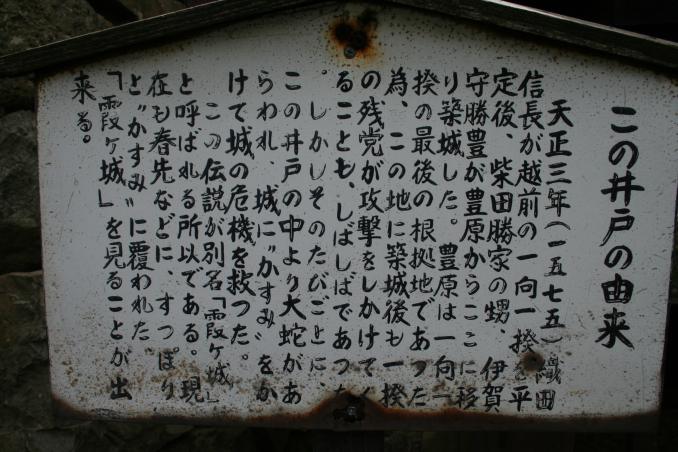 この井戸の由来
天正三年(一五七五)織田
信長が越前の一向一揆を平
定後、柴田勝家の甥、伊賀
守勝豊が豊原からここに移
り築城した。豊原は一向一
揆の最後の根拠地であった
為、この地に築城後も一揆
の残党が攻撃をしかけてく
ることも、しばしばであった
。しかしそのたびごとに、
この井戸の中より大蛇があ
らわれ、城に"かすみ"をか
けて城の危機を救った。
この伝説が別名「霞ヶ城」
と呼ばれる所以である。現
在も春先などに、すっぽり
と"かすみ"に覆われた
「霞ヶ城」を見ることが出
来る。